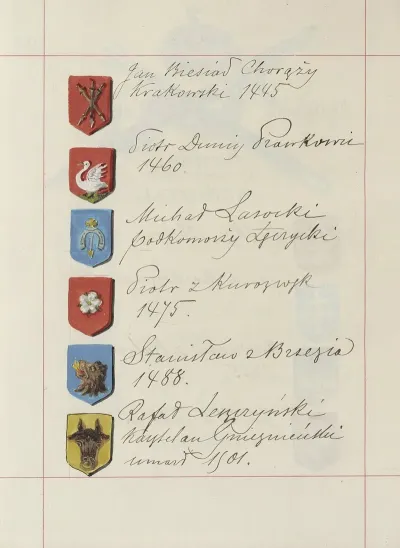 Jan Biesiad Chorąży
Krakowski 1445
Piotr Dunin Prawkowic
1460.
Michał Lasocki
Podkomorzy Łęczycki
Piotr z Kurozwęk
1475.
Stanisław z Brzezia
1488.
Rafał Leszczyński
Kasztelan Gnieźnieński
umarł 1501.